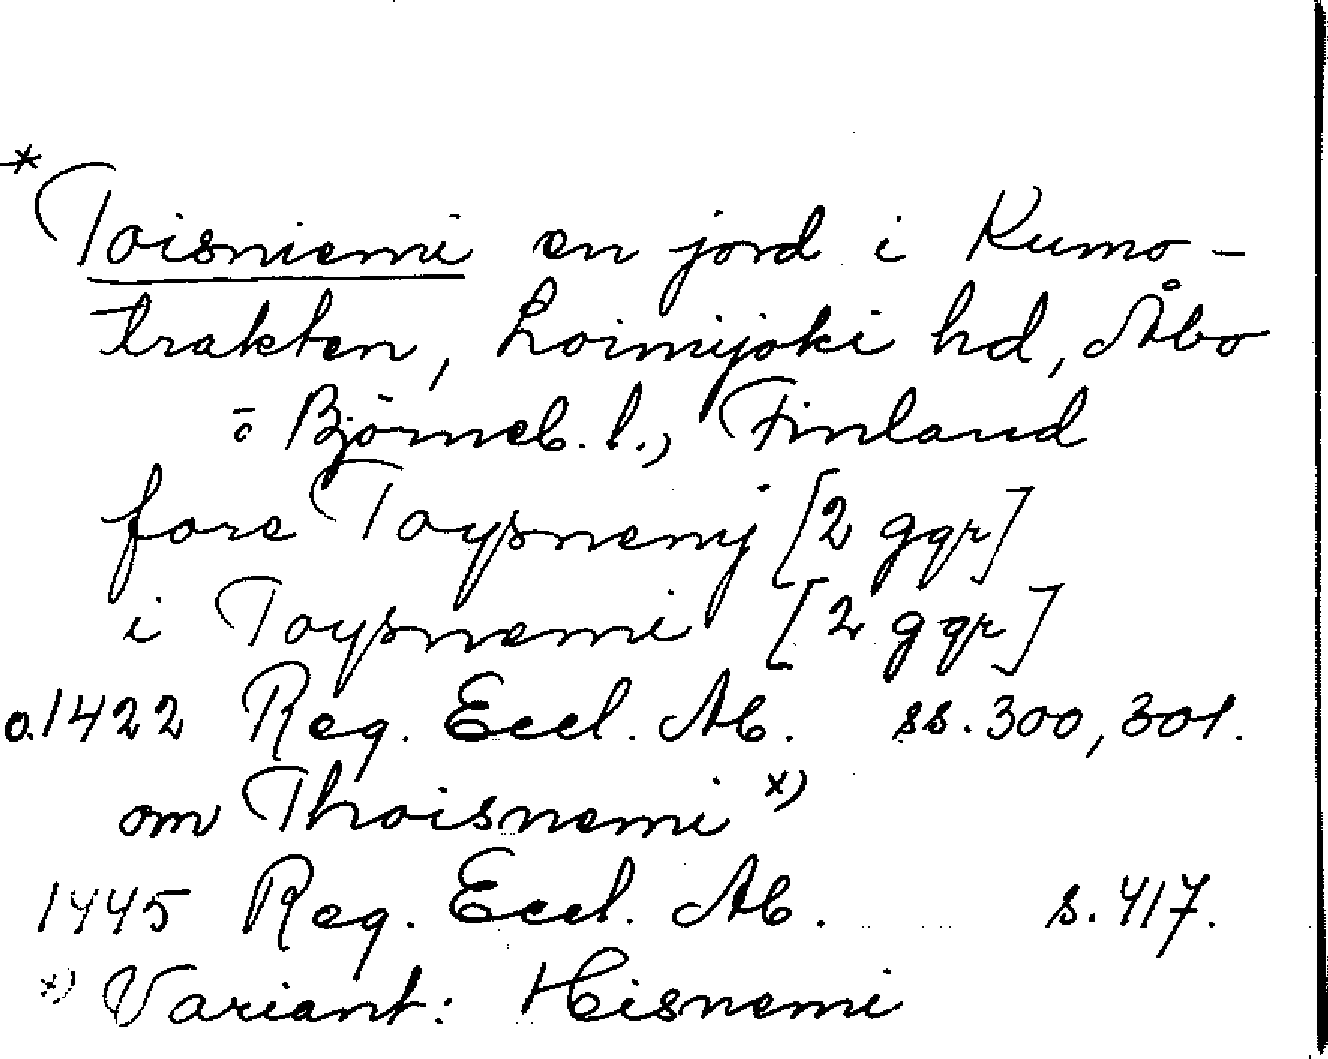 * Toisniemi en jord i Kumo-
trakten, Loimijoki hd, Åbo
o Björneb. l., Finland
fore Toysnemj [2 ggr]
i Toysnemi [2 ggr]
o.1422 Reg. Eccl. Ab. ss. 300, 301.
om Thoisnemi x)
1445 Reg. Eccl. Ab. s. 417.
x) Variant: Heisnemi